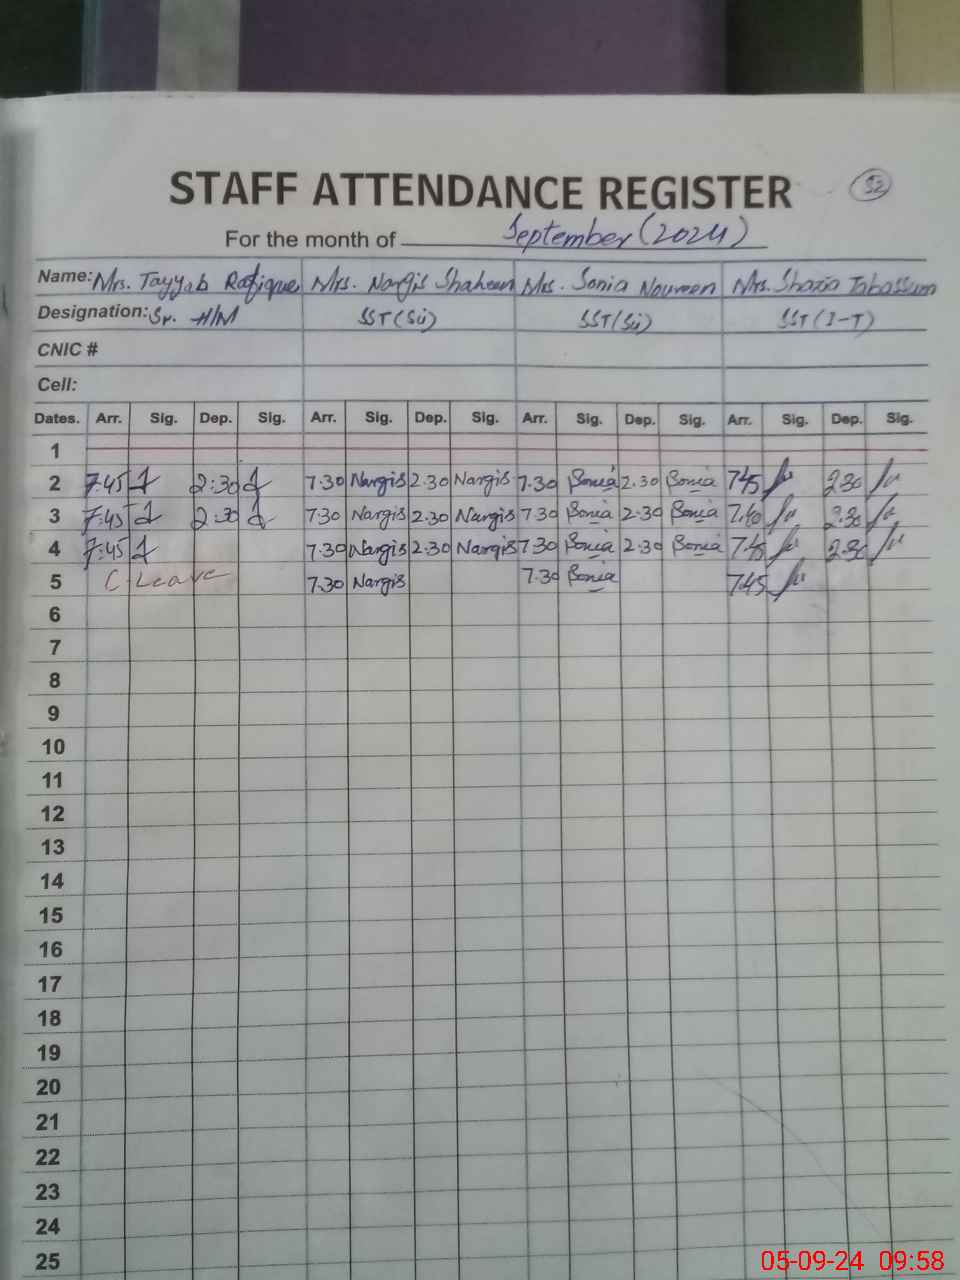 STAFF ATTENDANCE REGISTER 52
For the month of September (2024)
Name: Mrs. Tayyab Rafique Mrs. Nargis Shaheen Mrs. Sonia Noureen Mrs. Shazia Tabassum
Designation: Sr. H/M SST(Sci) SST(Sci) SST(I-T)
CNIC #
Cell:
Dates. Arr. Sig. Dep. Sig. Arr. Sig. Dep. Sig. Arr. Sig. Dep. Sig. Arr. Sig. Dep. Sig.
1
2 7:45 2:30 7.30 Nargis 2.30 Nargis 7.30 Sonia 2.30 Sonia 7.45 2.30
3 7:45 2:30 7.30 Nargis 2.30 Nargis 7.30 Sonia 2.30 Sonia 7.40 2.30
4 7:45 7.30 Nargis 2.30 Nargis 7.30 Sonia 2.30 Sonia 7.45 2.30
5 C-Leave 7.30 Nargis 7.30 Sonia 7.45
6
7
8
9
10
11
12
13
14
15
16
17
18
19
20
21
22
23
24
25
05-09-24 09:58